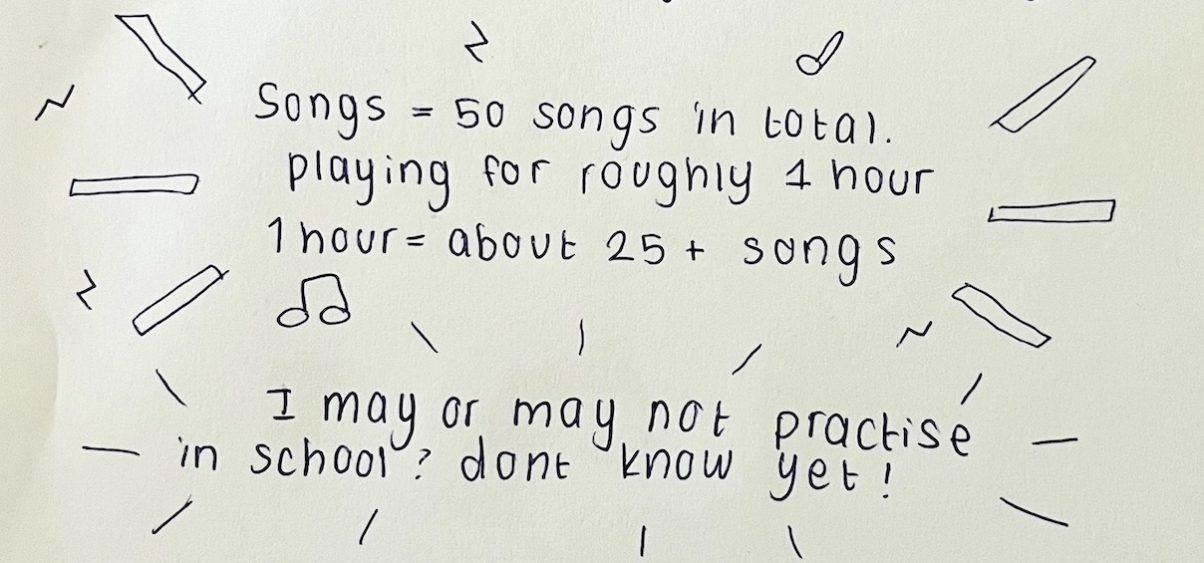 Songs = 50 songs in total.
playing for roughly 1 hour
1 hour = about 25 + songs
I may or may not practise
in school? dont know yet!